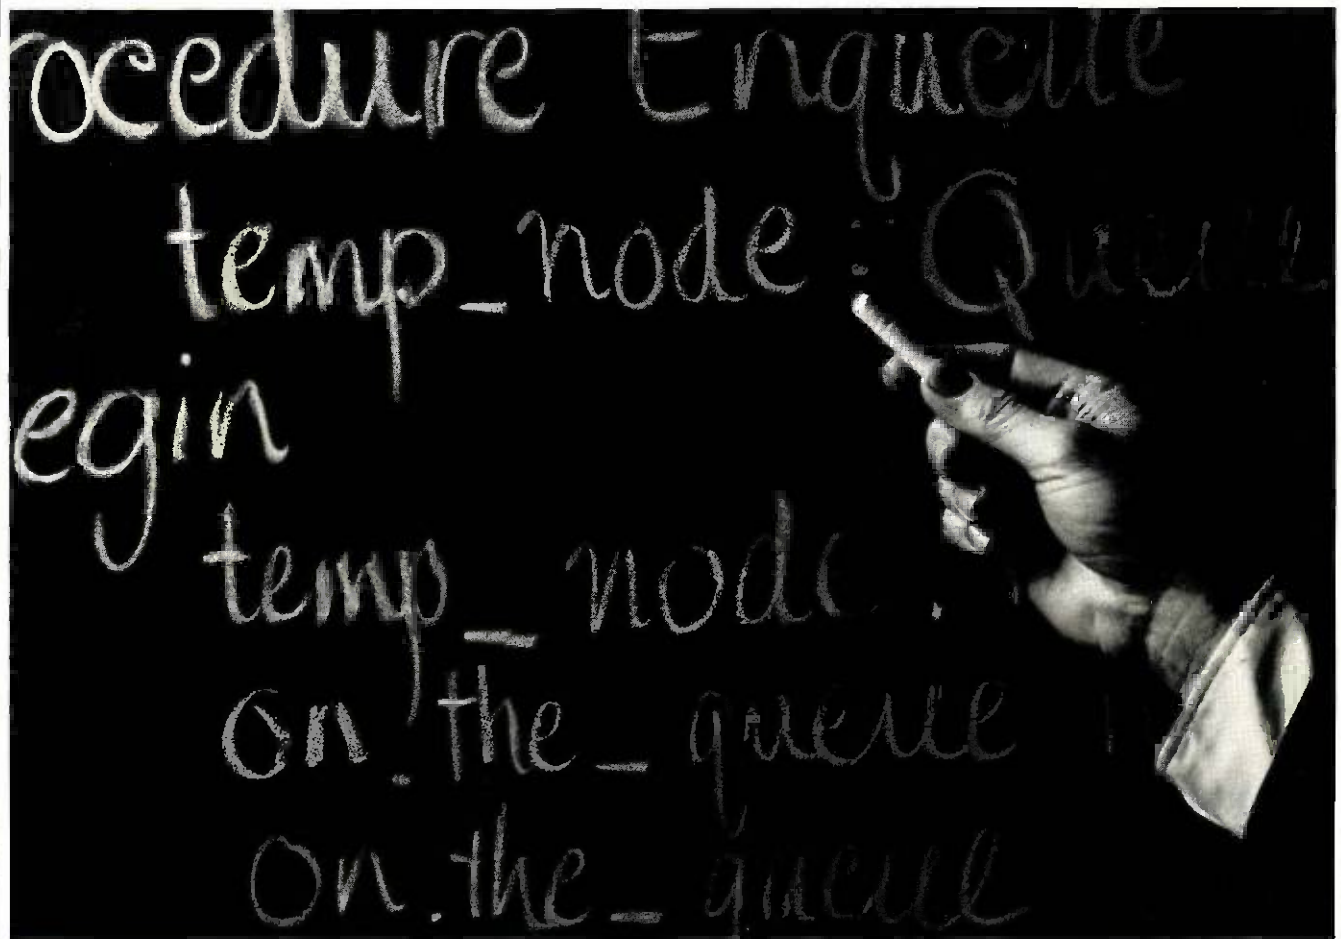 ocedure Enqueue
temp_node : Queue
egin
temp_node :
on.the_queue
on.the_queue